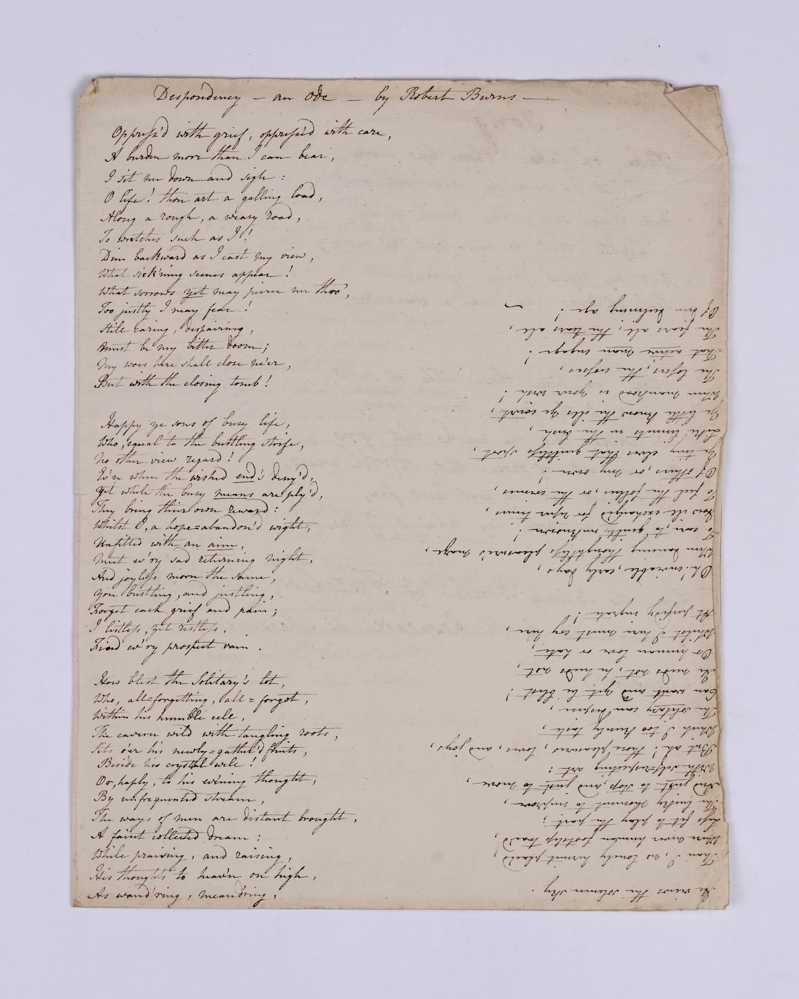 Despondency — an Ode — by Robert Burns —
Oppress'd with grief, oppress'd with care,
A burden more than I can bear,
I sit me down and sigh:
O life! thou art a galling load,
Along a rough, a weary road,
To wretches such as I!
Dim backward as I cast my view,
What sick'ning scenes appear!
What sorrows yet may pierce me thro',
Too justly I may fear!
Still caring, despairing,
Must be my bitter doom;
My woes here shall close ne'er,
But with the closing tomb!
Happy ye sons of busy life,
Who, equal to the bustling strife,
No other view regard!
Ev'n when the wished end's deny'd,
Yet while the busy means are ply'd,
They bring their own reward:
Whilst I, a hope-abandon'd wight,
Unfitted with an aim,
Meet ev'ry sad returning night,
And joyless morn the same,
You bustling, and justling,
Forget each grief and pain;
I listless, yet restless,
Find ev'ry prospect vain.
How blest the Solitary's lot,
Who, all-forgetting, all-forgot,
Within his humble cell,
The cavern wild with tangling roots,
Sits o'er his newly-gather'd fruits,
Beside his crystal well!
Or, haply, to his evening thought,
By unfrequented stream,
The ways of men are distant brought,
A faint collected dream:
While praising, and raising,
His thoughts to heav'n on high,
As wand'ring, meand'ring,
He views the solemn sky.
Than I, no lonely hermit plac'd,
Where never human footstep trac'd,
Less fit to play the part;
The lucky moment to improve,
And just to stop, and just to move,
With self-respecting art:
But ah! those pleasures, loves, and joys,
Which I too keenly taste,
The Solitary can despise,
Can want and yet be blest!
He needs not, he heeds not,
Or human love or hate;
Whilst I here must cry here,
At perfidy ingrate!
Oh! enviable, early days,
When dancing thoughtless, pleasure's maze,
To care, to guilt unknown!
How ill exchang'd for riper times,
To feel the follies, or the crimes
Of others, or my own!
Ye tiny elves that guiltless sport,
Like linnets in the bush,
Ye little know the ills ye court,
When manhood is your wish!
The losses, the crosses,
That active man engage!
The fears all, the tears all,
Of dim declining age!